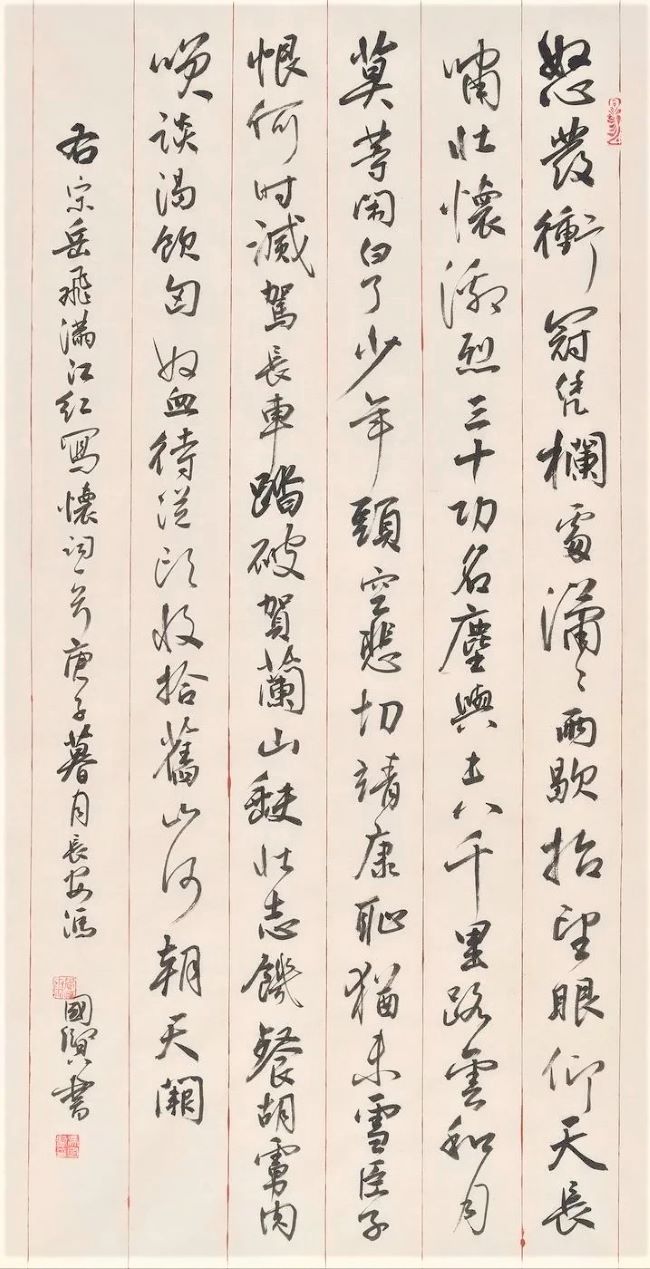 怒發衝冠凭欄處瀟〻雨歇抬望眼仰天長
嘯壯懷激烈三十功名塵與土八千里路雲和月
莫等閑白了少年頭空悲切靖康恥猶未雪臣子
恨何時滅駕長車踏破賀蘭山缺壯志饑餐胡虜肉
笑談渴飲匈奴血待從頭收拾舊山河朝天闕
右宋岳飛滿江紅寫懷詞一首庚子暮月長安馮
國賢書